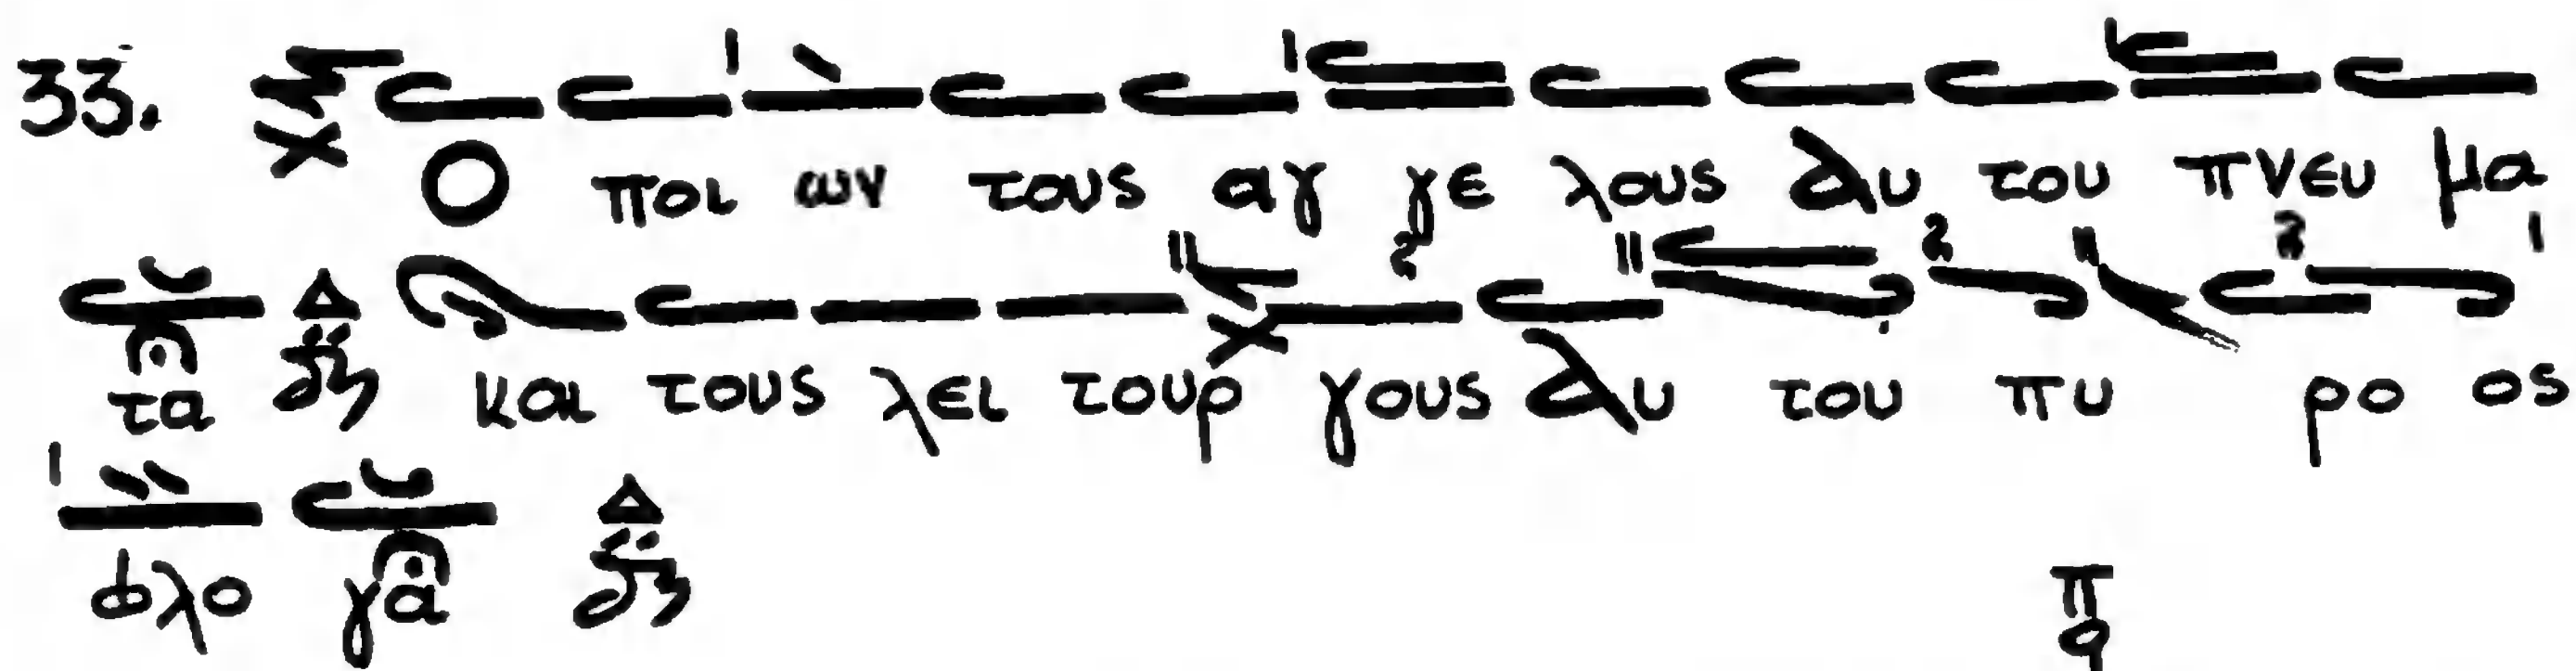 33. Ο ποι ων τους αγ γε λους Αυ του πνευ μα
τα Δι και τους λει τουρ γους Αυ του πυ ρο ος
φλο γα Δι
π